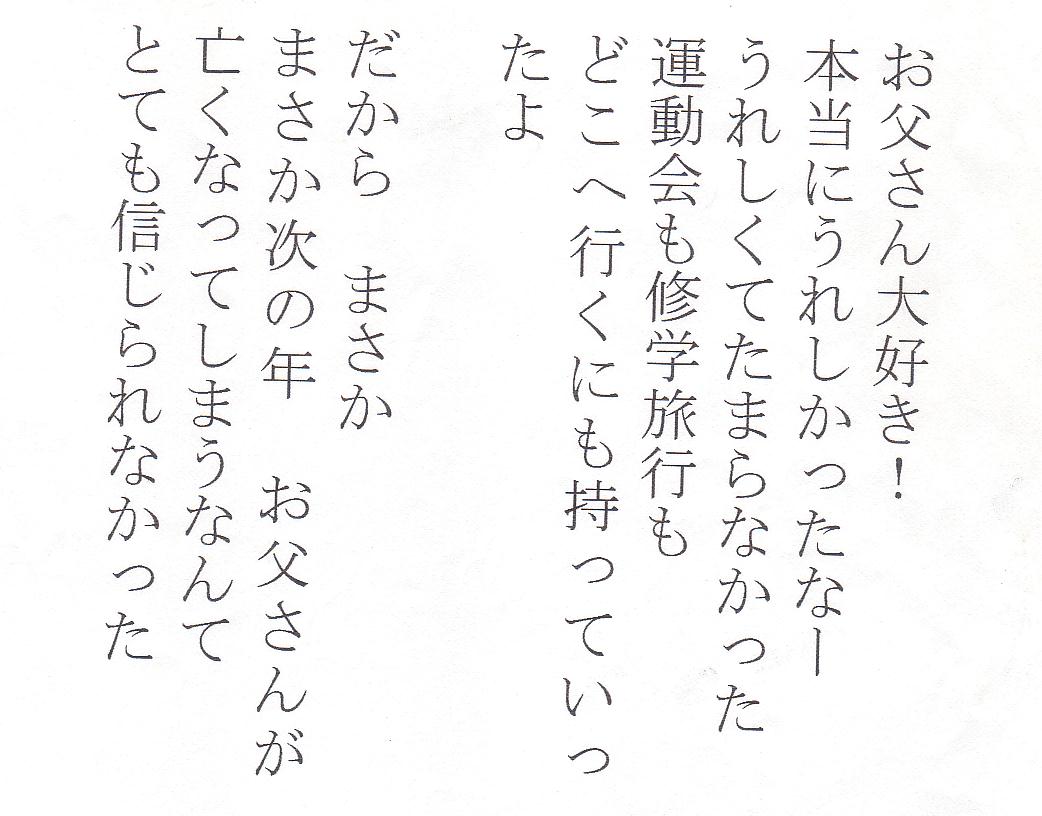 お父さん大好き！
本当にうれしかったなー
うれしくてたまらなかった
運動会も修学旅行も
どこへ行くにも持っていっ
たよ
だから　まさか
まさか次の年　お父さんが
亡くなってしまうなんて
とても信じられなかった